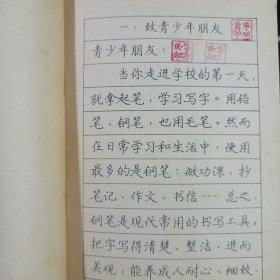 一、致青少年朋友
青少年朋友：
当你走进学校的第一天，
就拿起笔，学习写字。用铅
笔、钢笔，也用毛笔。然而
在日常学习和生活中，使用
最多的是钢笔：做功课、抄
笔记、作文、书信……总之，
钢笔是现代常用的书写工具。
把字写得清楚、整洁、进而
美观，能养成人耐心、细致、